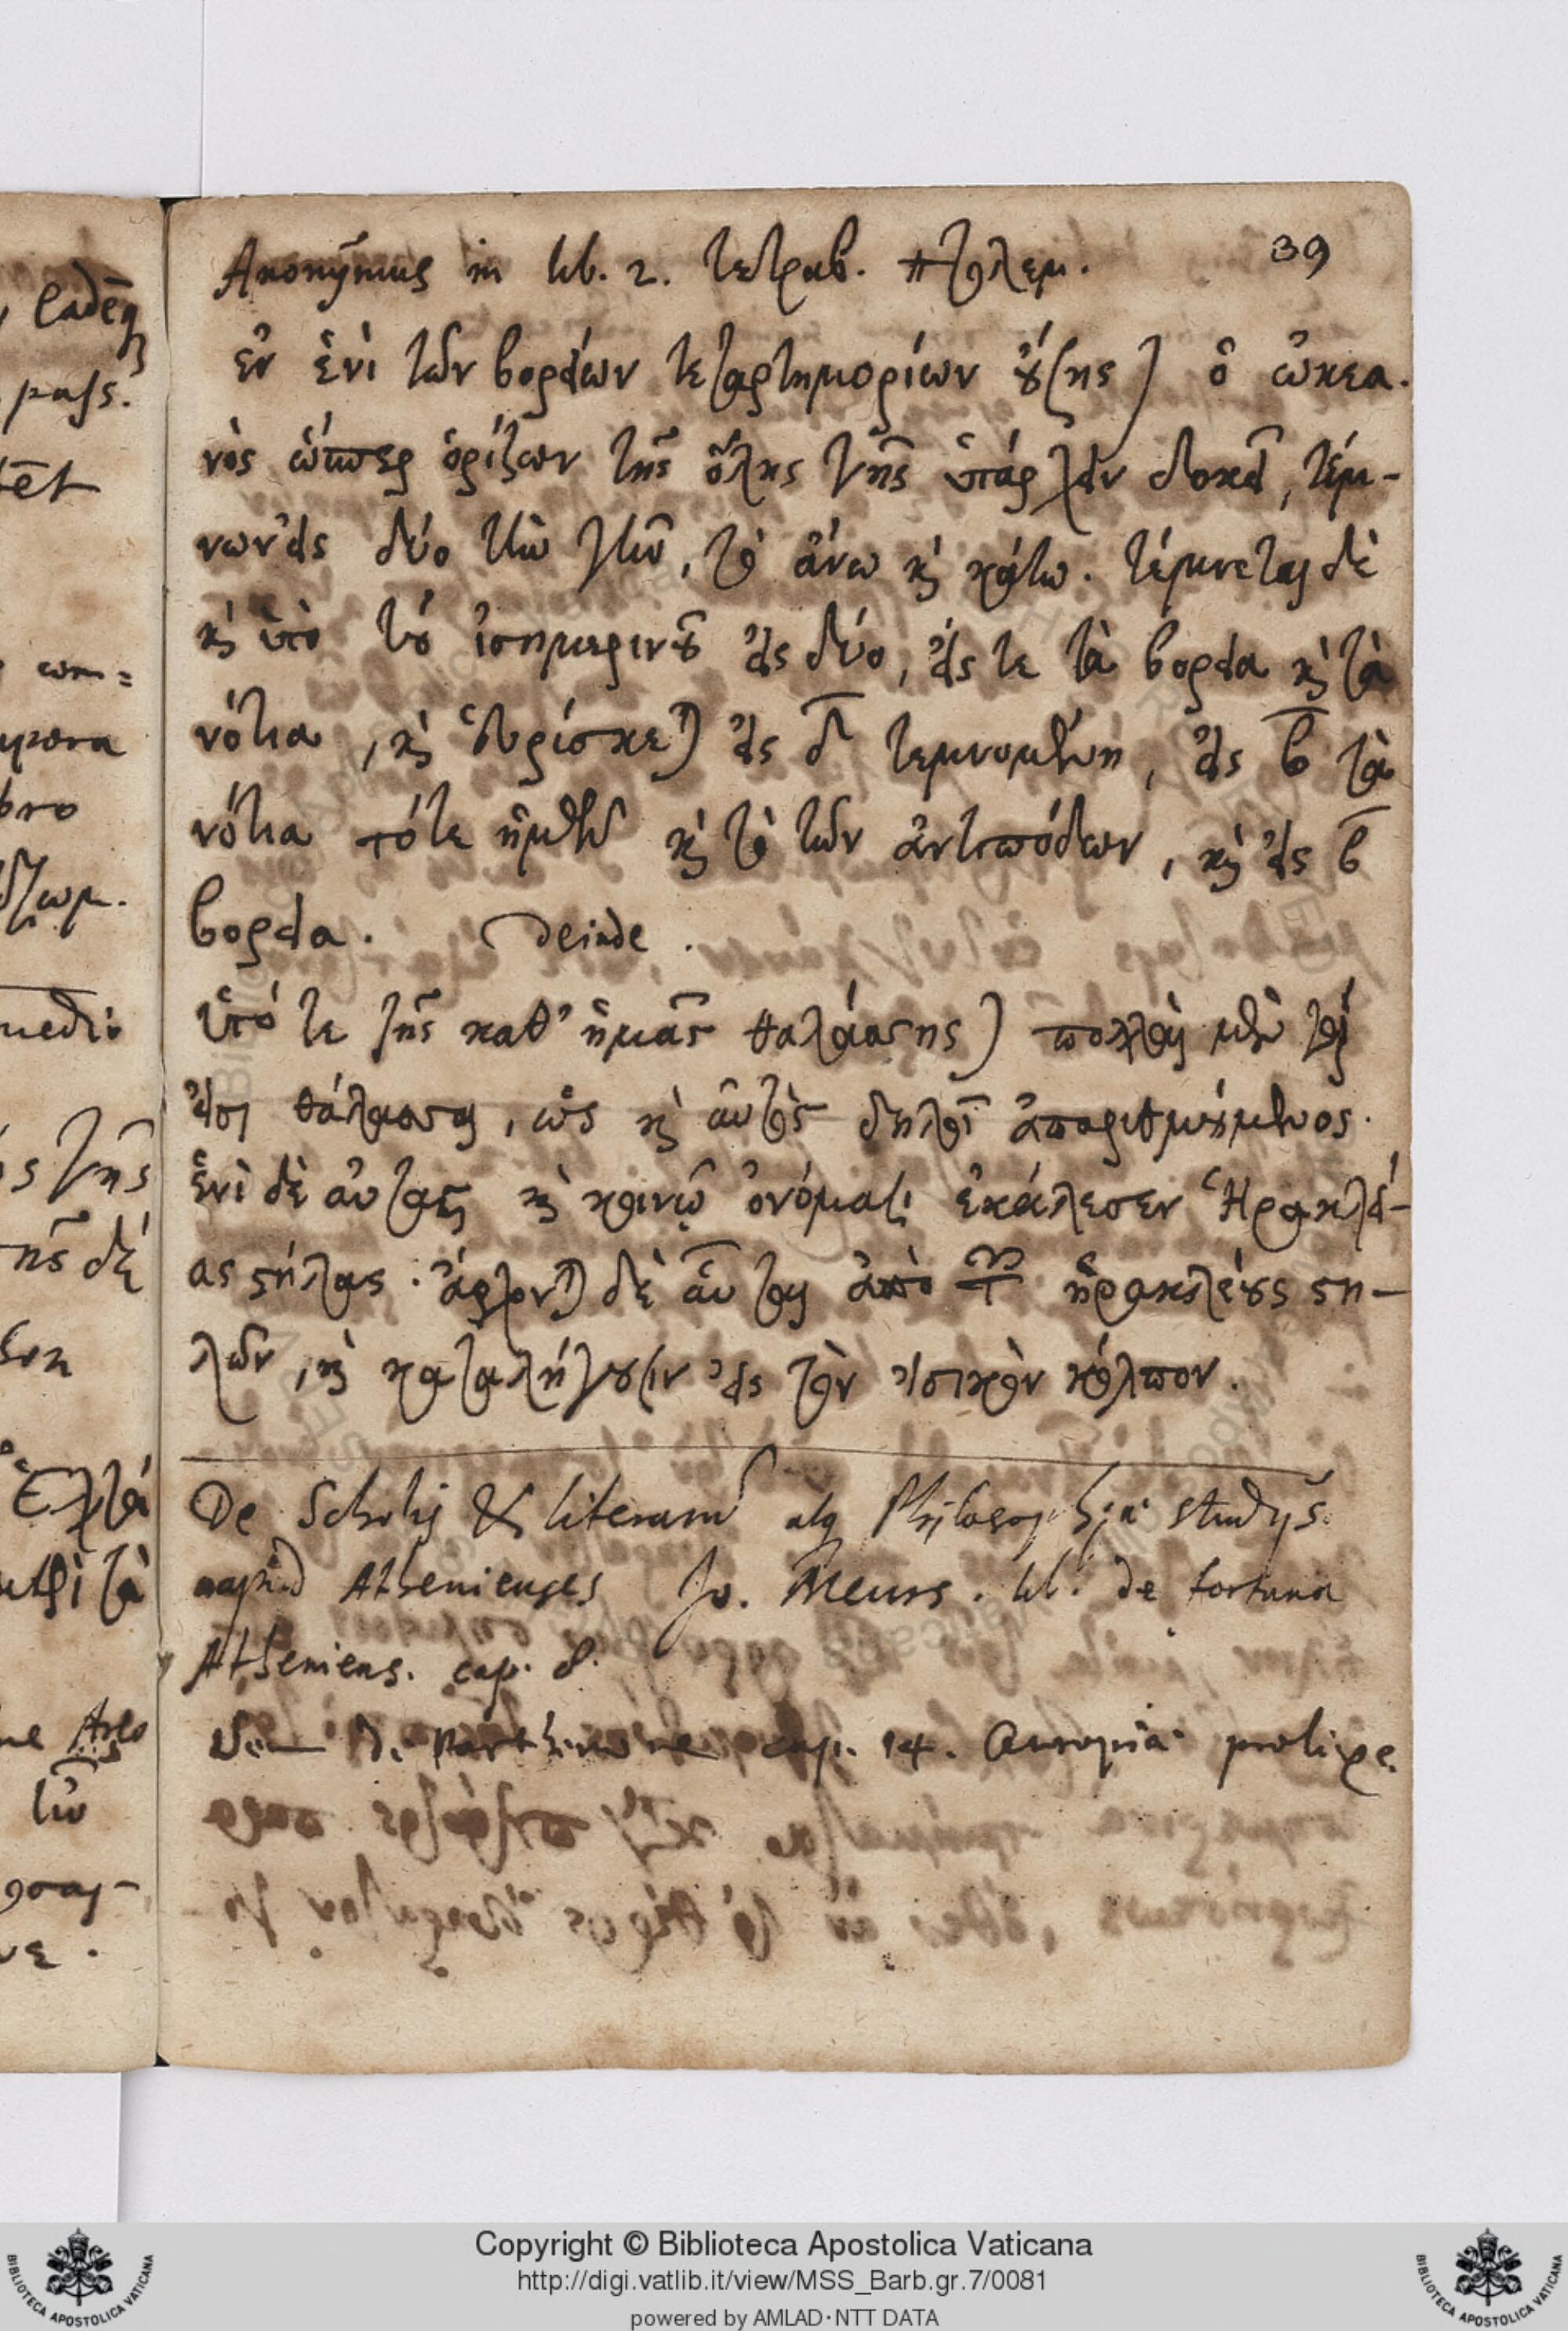 Anonymus in lib. 2. τετραβ. πτολεμ. 39
ἐν ἑνὶ τῶν βορείων τεταρτημορίων οὔσης) ὁ ὠκεα-
νὸς ὥσπερ ὁρίζων τῆς ὅλης γῆς ὑπάρχειν δοκεῖ, τέμ-
νων εἰς δύο τὴν γῆν, τὸ ἄνω καὶ κάτω. τέμνεται δὲ
καὶ ὑπὸ τοῦ ἰσημερινοῦ εἰς δύο, εἴς τε τὰ βορεια καὶ τὰ
νότια, καὶ εὑρίσκεται εἰς δ̅ τεμνομένη, εἰς β̅ τὰ
νότια τότε ἡμῶν καὶ τὸ τῶν ἀντιπόδων, καὶ εἰς β̅
βορεια. Deinde.
ὑπό τε τῆς καθ' ἡμᾶς θαλάσσης) πολλαὶ μὲν γάρ
εἰσι θάλασσαι, ὡς καὶ αὐτὸς δηλοῖ ἀπαριθμούμενος.
ἑνὶ δὲ αὐτὰς καὶ κοινῷ ὀνόματι ἐκάλεσεν Ἡρακλεί-
ας στήλας. ἄρχονται δὲ αὗται ἀπὸ τῶν ἡρακλέους στη-
λῶν, καὶ καταλήγουσιν εἰς τὸν ἰσικὸν κόλπον.
De Scholis & literarum atq Philosophiæ studijs
apud Athenienses Jo. Meurs. lib. de fortuna
Atheniens. cap. 8.
cap. 14. prolixe.
eadēq
pass.
com=
bro
medio
τῆς
τὰ
τὴν